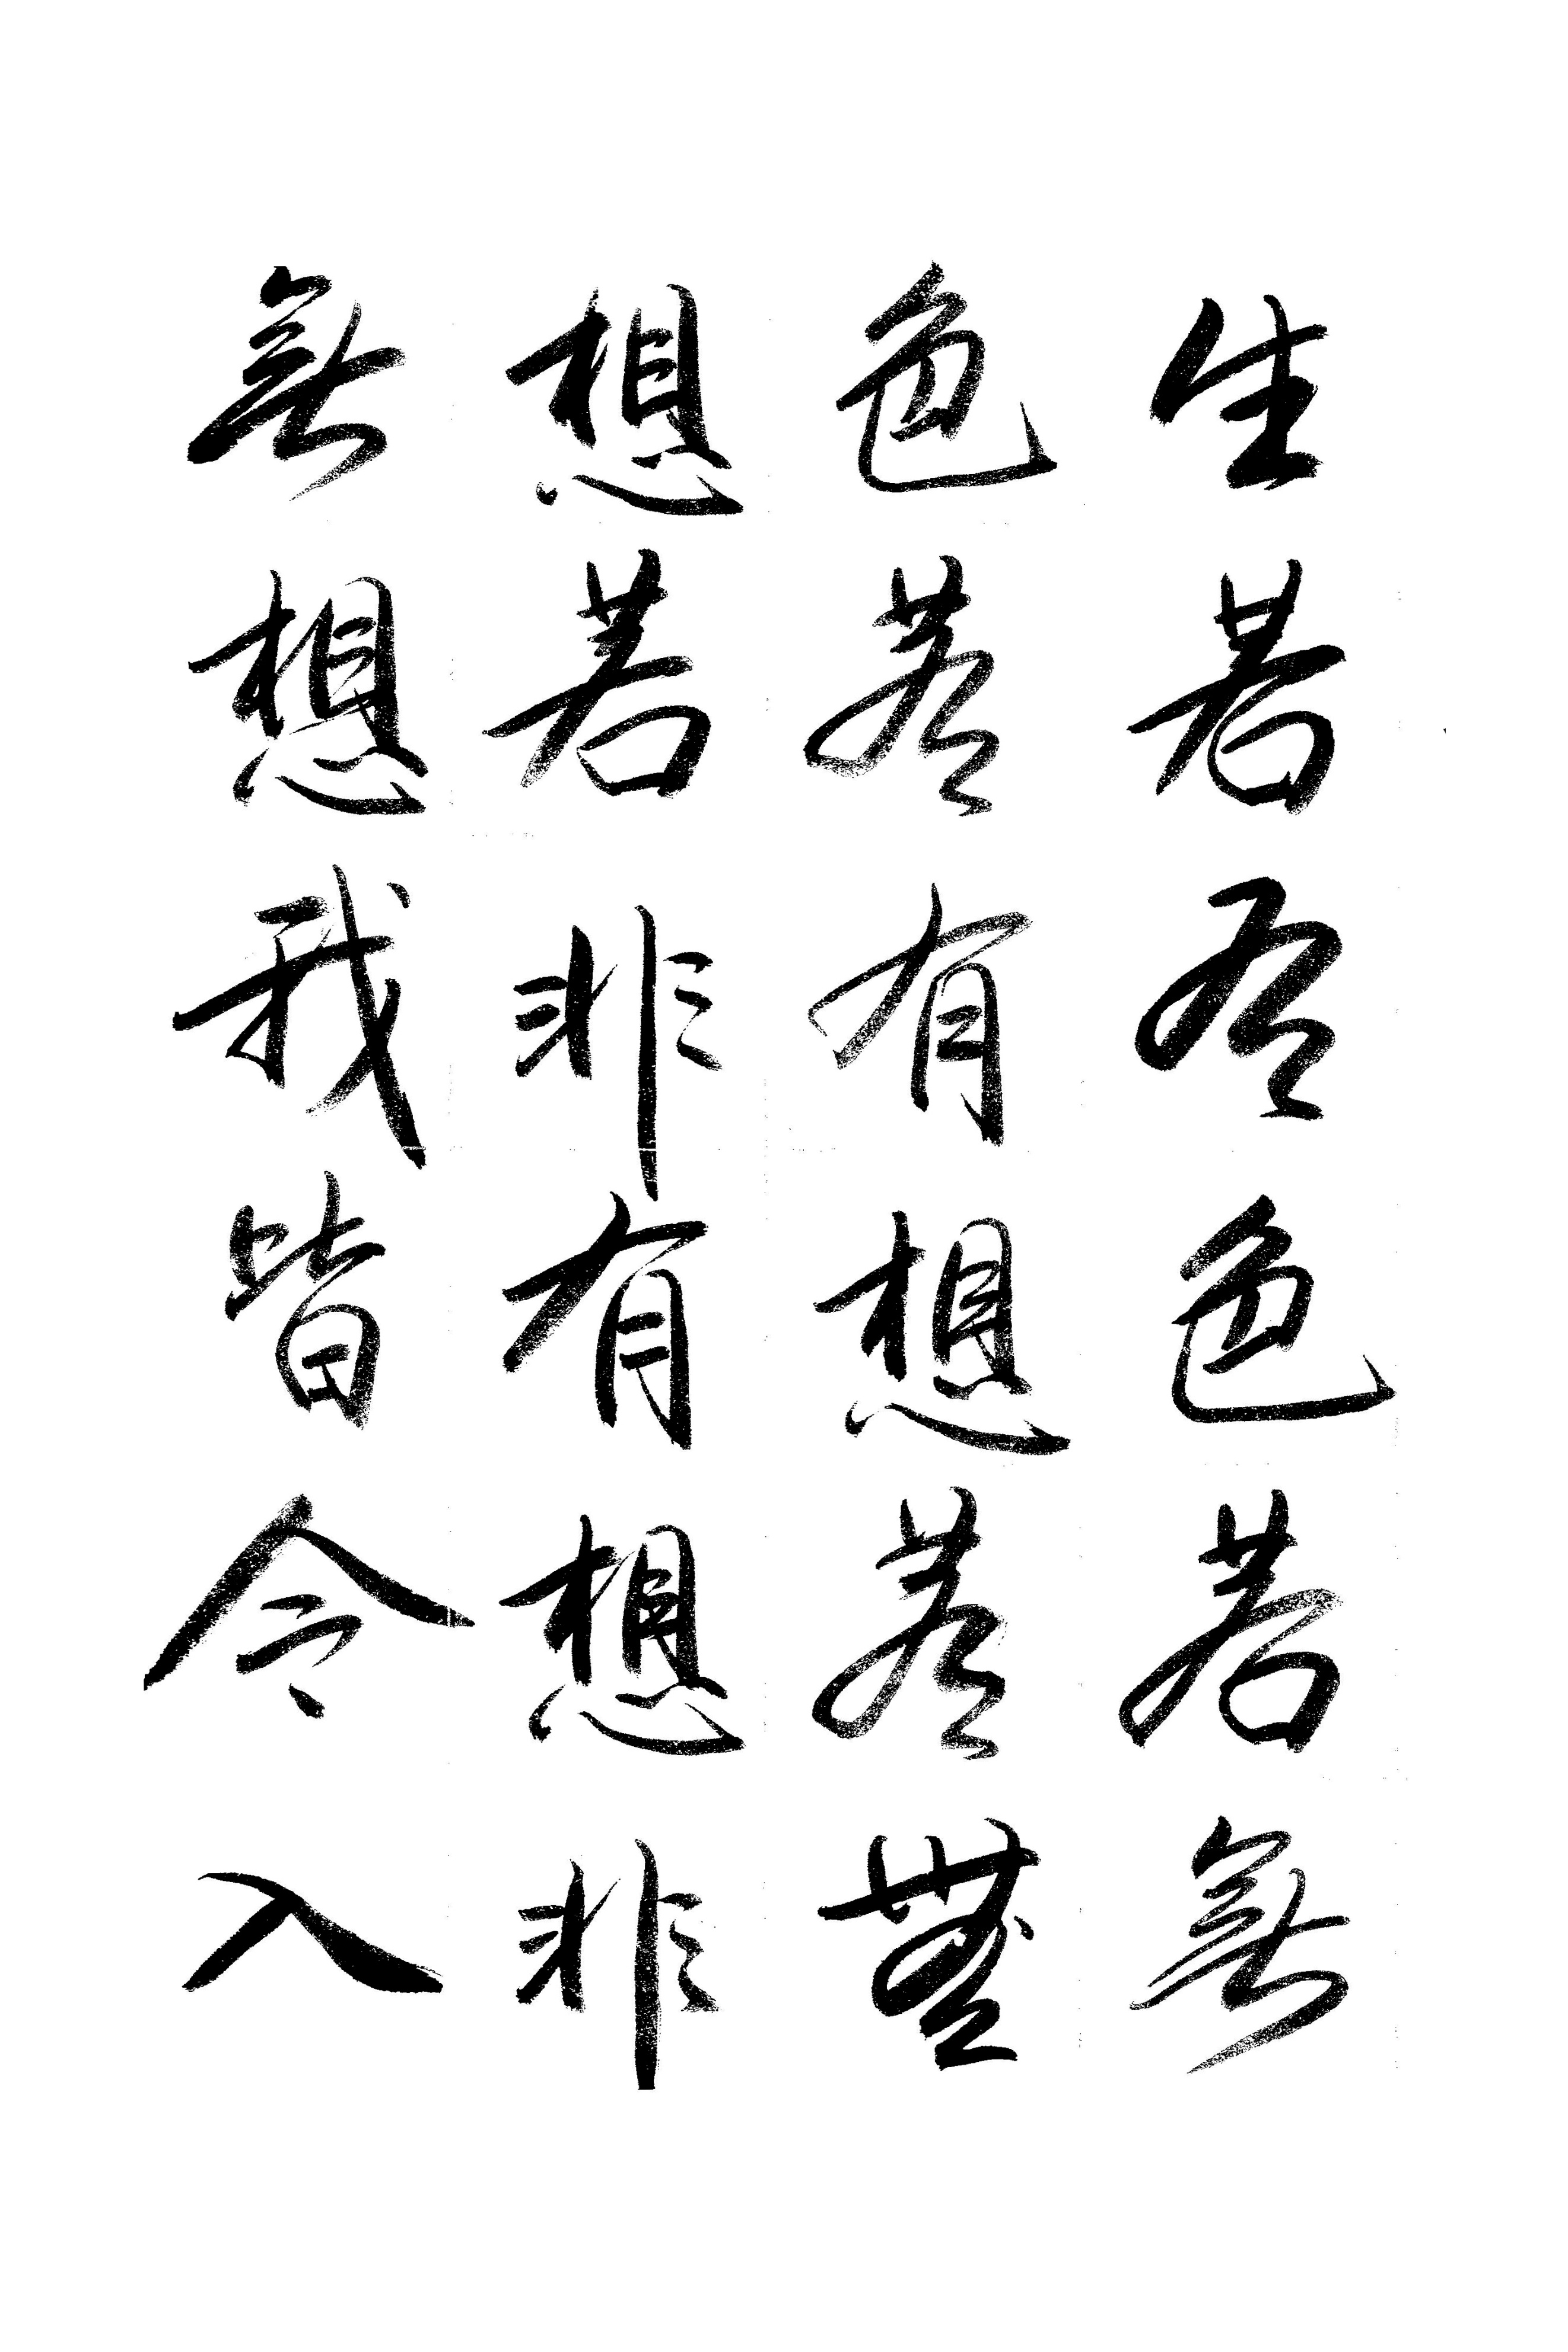 生若有色若無
色若有想若無
想若非有想非
無想我皆令入